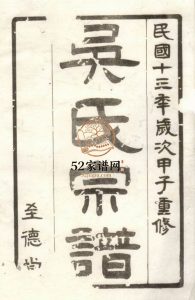 民國十三年歲次甲子重修
吳氏宗譜
至德尚
52家谱网